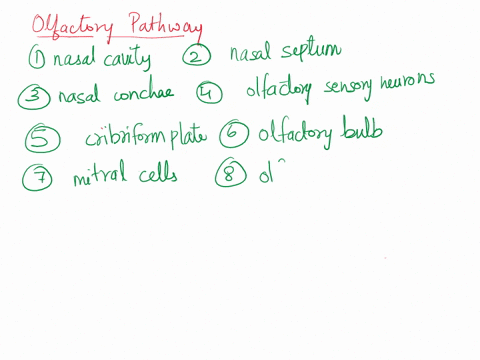 Olfactory Pathway
① nasal cavity ② nasal septum
③ nasal conchae ④ olfactory sensory neurons
⑤ cribriform plate ⑥ olfactory bulb
⑦ mitral cells ⑧ ol